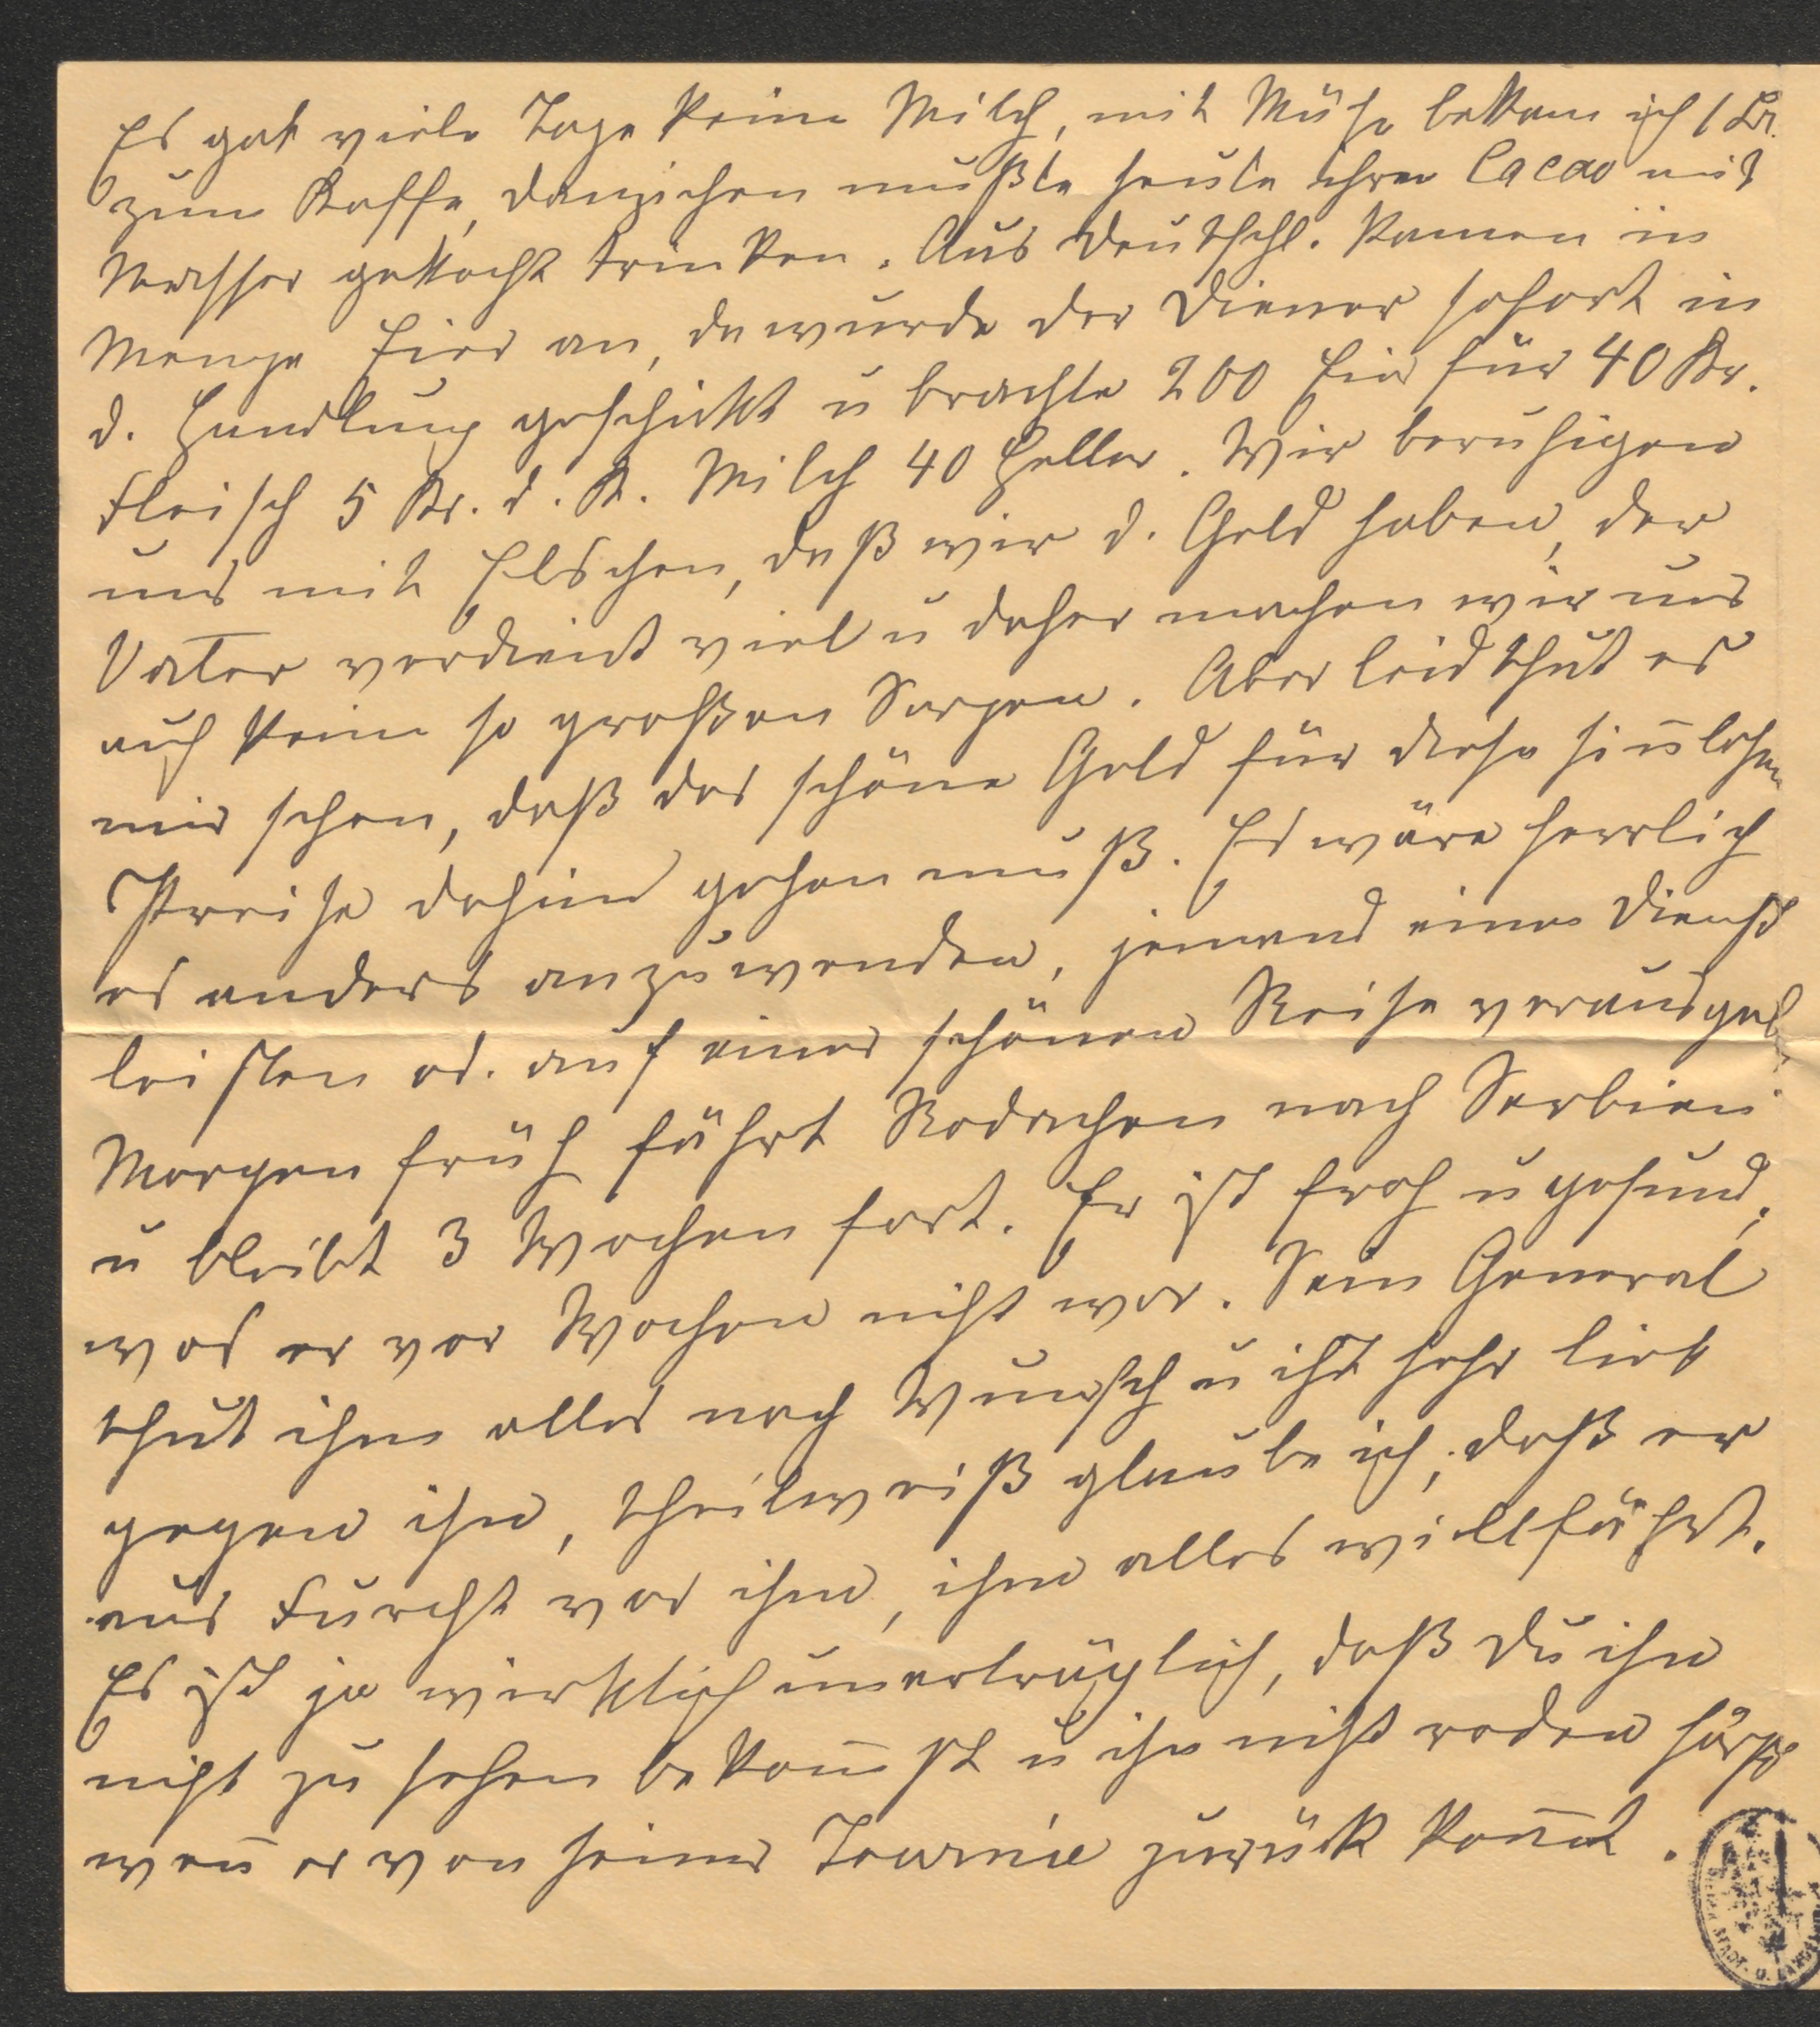 Es gab viele Tage keine Milch, mit Mühe bekam ich 1 Lr.
zum Kaffe, mußte heute ihren Cacao mit
Wasser gekocht trinken. Aus Deutschl. kamen in
Menge Eier an, da wurde der Diener sofort in
d. Handlung geschickt u brachte 200 Eier für 40 Kr.
Fleisch 5 Kr. d. K. Milch 40 Heller. Wir beruhigen
uns mit Elschen, daß wir d. Geld haben, der
Vater verdient viel u daher machen wir uns
auch keine so großen Sorgen. Aber leid thut es
mir schon, daß das schöne Geld für diese siñlosen
Preise dahin gehen muß. Es wäre herrlich
es anders anzuwenden, jemand einen Dienst
leisten od. auf einer schönen Reise verausgab
Morgen früh fährt Rodachen nach Serbien
u bleibt 3 Wochen fort. Er ist froh u gesund,
was er vor Wochen nicht war. Sein General
thut ihm alles nach Wunsch u ist sehr lieb
gegen ihn, theilweiß glaube ich, daß er
aus Furcht vor ihm, ihm alles willfährt.
Es ist ja wirklich unerträglich, daß Du ihn
nicht zu sehen bekom̄st u ihn nicht reden hörst
weñ er von seiner Tournie zurück kom̄t.
STADT- U.